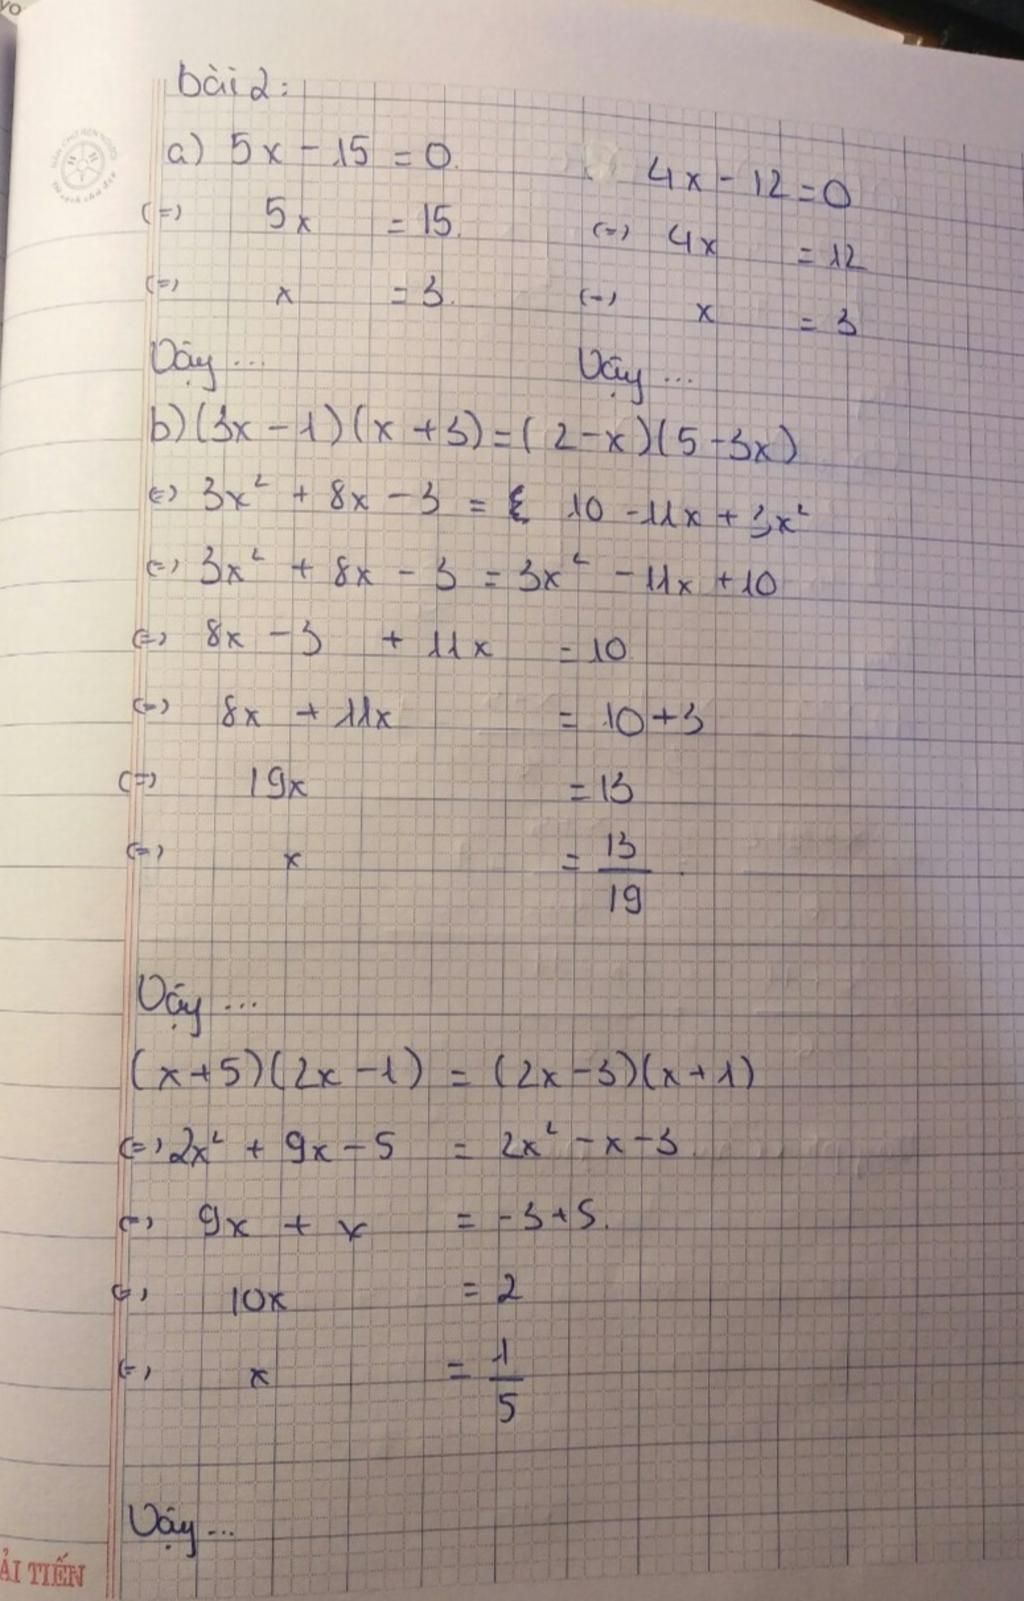 bài 2:
a) 5x - 15 = 0
(=) 5x = 15
(=) x = 3
Vậy ...
4x - 12 = 0
(=) 4x = 12
(=) x = 3
Vậy ...
b) (3x - 1)(x + 3) = (2 - x)(5 - 3x)
(=) 3x² + 8x - 3 = 10 - 11x + 3x²
(=) 3x² + 8x - 3 = 3x² - 11x + 10
(=) 8x - 3 + 11x = 10
(=) 8x + 11x = 10 + 3
(=) 19x = 13
(=) x = 13/19
Vậy ...
(x + 5)(2x - 1) = (2x - 3)(x + 1)
(=) 2x² + 9x - 5 = 2x² - x - 3
(=) 9x + x = -3 + 5.
(=) 10x = 2
(=) x = 1/5
Vậy ...
ẢI TIẾN